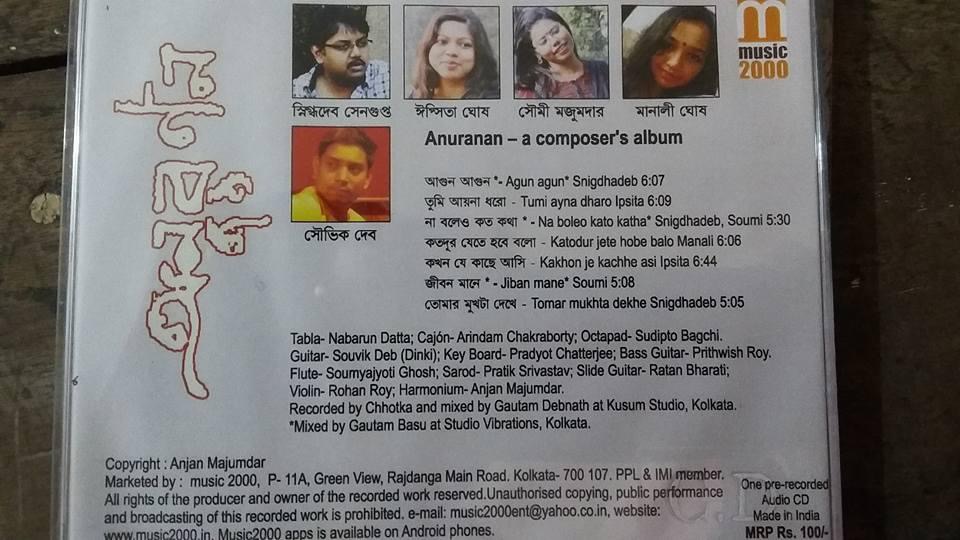 music
2000
স্নিগ্ধদেব সেনগুপ্ত
ঈপ্সিতা ঘোষ
সৌমী মজুমদার
মানালী ঘোষ
সৌভিক দেব
Anuranan – a composer's album
আগুন আগুন *- Agun agun* Snigdhadeb 6:07
তুমি আয়না ধরো - Tumi ayna dharo Ipsita 6:09
না বলেও কত কথা * - Na boleo kato katha* Snigdhadeb, Soumi 5:30
কতদূর যেতে হবে বলো – Katodur jete hobe balo Manali 6:06
কখন যে কাছে আসি - Kakhon je kachhe asi Ipsita 6:44
জীবন মানে * - Jiban mane* Soumi 5:08
তোমার মুখটা দেখে - Tomar mukhta dekhe Snigdhadeb 5:05
Tabla- Nabarun Datta; Cajón- Arindam Chakraborty; Octapad- Sudipto Bagchi.
Guitar- Souvik Deb (Dinki); Key Board- Pradyot Chatterjee; Bass Guitar- Prithwish Roy.
Flute- Soumyajyoti Ghosh; Sarod- Pratik Srivastav; Slide Guitar- Ratan Bharati;
Violin- Rohan Roy; Harmonium- Anjan Majumdar.
Recorded by Chhotka and mixed by Gautam Debnath at Kusum Studio, Kolkata.
*Mixed by Gautam Basu at Studio Vibrations, Kolkata.
Copyright : Anjan Majumdar
Marketed by : music 2000, P- 11A, Green View, Rajdanga Main Road. Kolkata- 700 107. PPL & IMI member.
All rights of the producer and owner of the recorded work reserved.Unauthorised copying, public performance
and broadcasting of this recorded work is prohibited. e-mail: music2000ent@yahoo.co.in, website:
www.music2000.in. Music2000 apps is available on Android phones.
One pre-recorded
Audio CD
Made in India
MRP Rs. 100/-